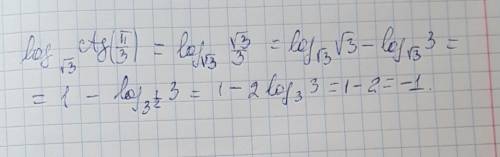 log_{√3} ctg(π/3) = log_{√3} √3/3 = log_{√3} √3 − log_{√3} 3 =
= 1 − log_{3^{1/2}} 3 = 1 − 2 log_3 3 = 1 − 2 = −1.